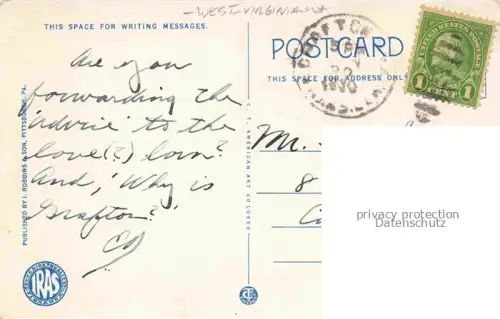 WEST-VIRGINIA
THIS SPACE FOR WRITING MESSAGES.
POSTCARD
THIS SPACE FOR ADDRESS ONLY
GRAFTON
1930
UNITED STATES POSTAGE
1 CENT 1
Are you
forwarding the
'advice' to the
love(?) lorn?
And, 'Why is
Grafton?'
M.
8
privacy protection
Datenschutz
PUBLISHED BY I. ROBBINS & SON, PITTSBURGH, PA.
C. T. AMERICAN ART COLORED
IRAS